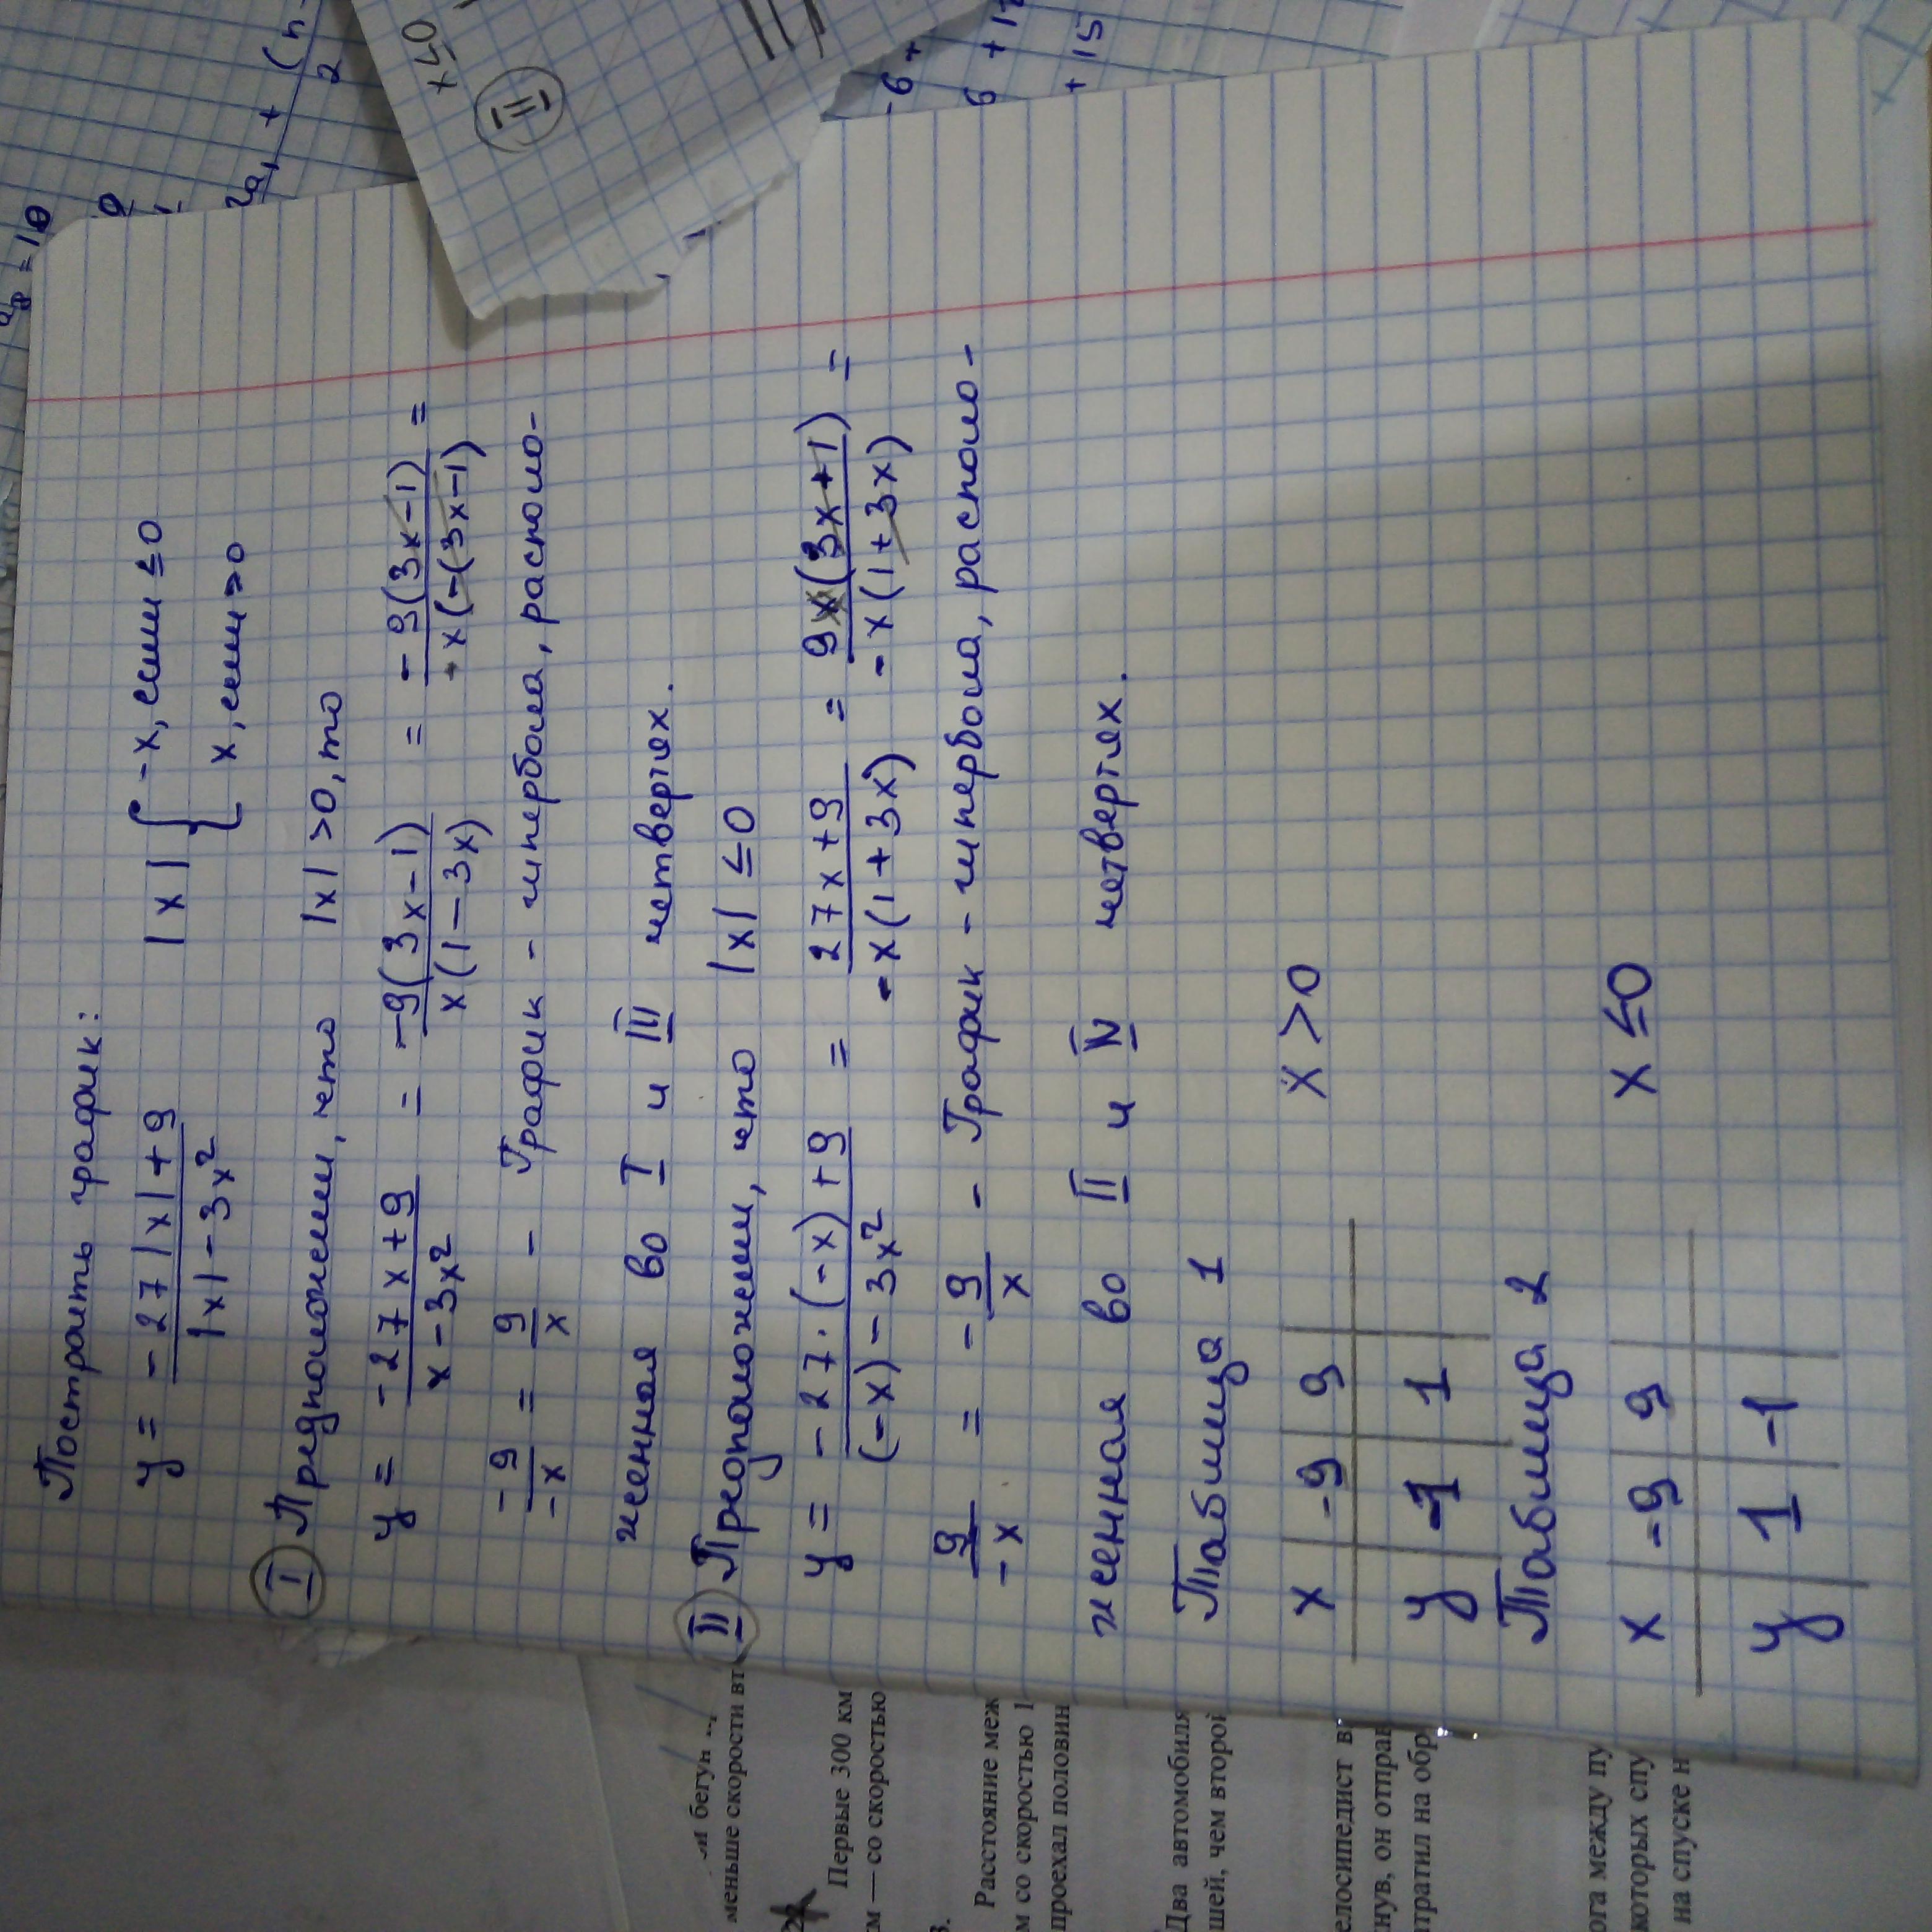 Построить график:
y = -27|x|+9 / |x|-3x² |x| { -x, если ≤0
x, если >0
I Предположим, что |x|>0, то
y = -27x+9 / x-3x² = -9(3x-1) / x(1-3x) = -9(3x-1) / x(-(3x-1) =
-9/-x = 9/x - График - гипербола, располо-
женная во I и III четвертях.
II Предположим, что |x| ≤ 0
y = -27·(-x)+9 / (-x)-3x² = 27x+9 / -x(1+3x) = 9x(3x+1) / -x(1+3x) =
9/-x = -9/x - График - гипербола, располо-
женная во II и IV четвертях.
Таблица 1
x -9 9 x > 0
y -1 1
Таблица 2
x -9 9 x ≤ 0
y 1 -1
x≤0
II
= 10
2a₁ + (n-
2
-6+
6 +1
+ 15
бегун
меньше скорости вт
Первые 300 км
км — со скоростью
Расстояние меж
м со скоростью 1
проехал половин
Два автомобиля
шей, чем второй
елосипедист в
нув, он отпра
тратил на обр
ога между пу
которых спу
на спуске н